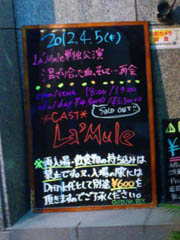 2012.4.5(木)
La'Mule 単独公演
混ざり合った血、そして…再会
open/start 18:00/19:00
SOLD OUT!
☆CAST☆
La'Mule
※再入場・飲食物の持ち込みは
禁止です。又、入場の際には
Drink代として別途¥600を
頂きますのでご了承ください